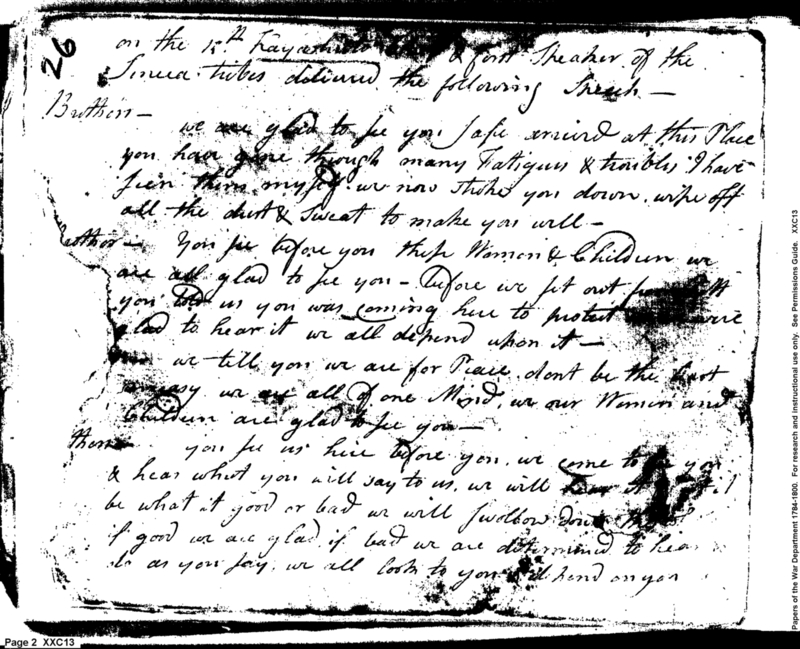 26
on the 15th & first Speaker of the
Seneca tribes delivered the following Speech —
Brothers —
we are glad to see you safe arrived at this Place
you have gone through many Fatigues & troubles I have
seen them myself. we now stroke you down. wipe off
all the dust & Sweat to make you well —
other — You see before you these Women & Children we
are all glad to see you — before we set out
you told us you was coming here to protect were
glad to hear it we all depend upon it —
we tell you we are for Peace. dont be the least
uneasy we are all of one Mind, we our Women and
Children are glad to see you —
thers — you see us here before you. we come to see you
& hear what you will say to us, we will
be what it good or bad we will swollow down
if good we are glad if bad we are determined to hear
do as you say. we all look to you & depend on you
Page 2 XXC13
Papers of the War Department 1784-1800. For research and instructional use only. See Permissions Guide. XXC13